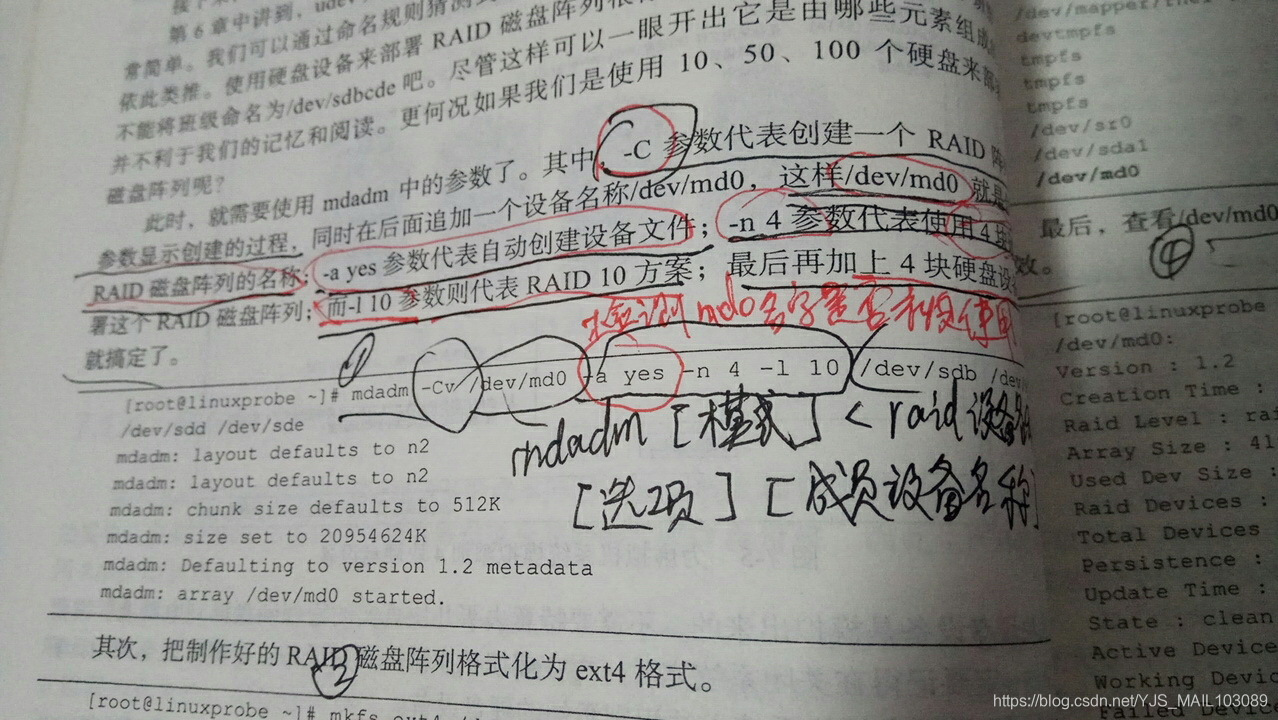 第 6 章中讲到，
常简单。我们可以通过命名规则猜测
依此类推。使用硬盘设备来部署 RAID 磁盘阵列
不能将班级命名为/dev/sdbcde 吧。尽管这样可以一眼开出它是由哪些元素组成
并不利于我们的记忆和阅读。更何况如果我们是使用 10、50、100 个硬盘来部
磁盘阵列呢？
此时，就需要使用 mdadm 中的参数了。其中，-C 参数代表创建一个 RAID
参数显示创建的过程，同时在后面追加一个设备名称/dev/md0，这样/dev/md0 就是
RAID 磁盘阵列的名称；-a yes 参数代表自动创建设备文件；-n 4 参数代表使用 4 块
署这个 RAID 磁盘阵列；而-l 10 参数则代表 RAID 10 方案；最后再加上 4 块硬盘设
就搞定了。
md0名字是否
①
[root@linuxprobe ~]# mdadm -Cv /dev/md0 -a yes -n 4 -l 10 /dev/sdb
/dev/sdd /dev/sde
mdadm: layout defaults to n2
mdadm: layout defaults to n2
mdadm: chunk size defaults to 512K
mdadm: size set to 20954624K
mdadm: Defaulting to version 1.2 metadata
mdadm: array /dev/md0 started.
mdadm [模式] < raid设备名
[选项] [成员设备名称]
其次，把制作好的 RAID 磁盘阵列格式化为 ext4 格式。
②
[root@linuxprobe ~]#
devtmpfs
tmpfs
tmpfs
tmpfs
/dev/sr0
/dev/sda1
/dev/md0
最后，查看/dev/md0
④
效。
[root@linuxprobe
/dev/md0:
Version : 1.2
Creation Time :
Raid Level :
Array Size : 41
Used Dev Size :
Raid Devices :
Total Devices
Persistence :
Update Time :
State : clean
Active Device
Working Devic
https://blog.csdn.net/YJS_MAIL103089